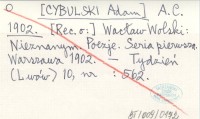 [CYBULSKI Adam] A.C.
1902. [Rec. o:] Wacław Wolski:
Nieznanym. Poezje. Seria pierwsza.
Warszawa 1902. — Tydzień
(Lwów) 10, nr : 562.